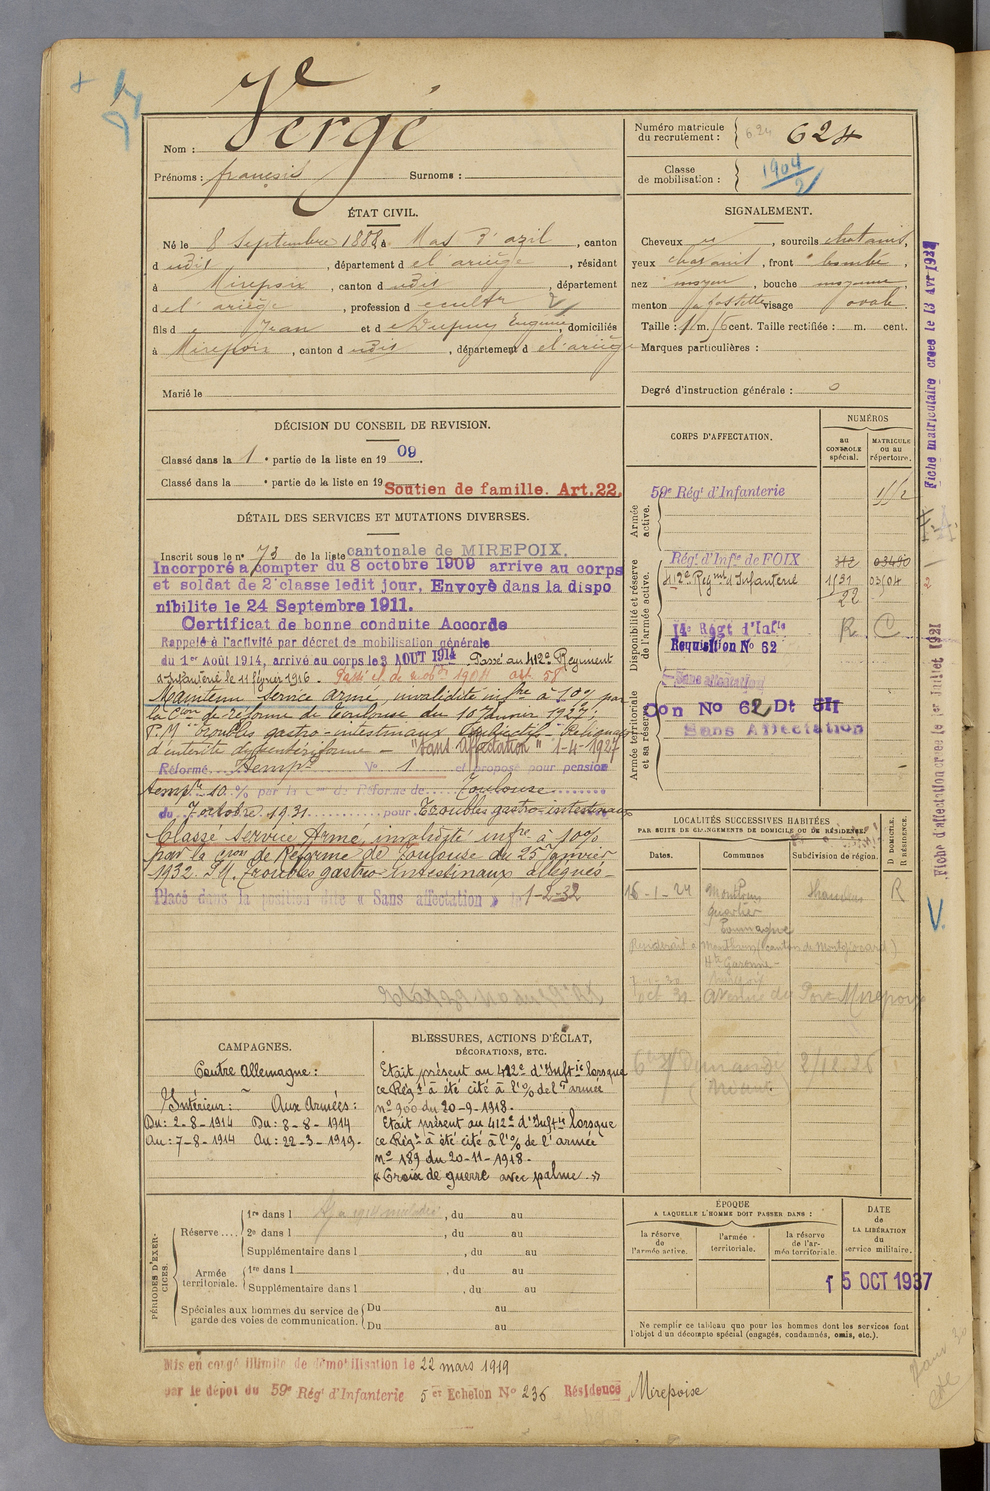 Vergé
Nom :
Prénoms : françois Surnoms :
Numéro matricule du recrutement : 624 624
Classe de mobilisation : 1904/2
ÉTAT CIVIL.
Né le 8 Septembre 1888 à Mas d'azil, canton
d udit, département d e l'ariège, résidant
à Mirepoix, canton d udit, département
d e l'ariège, profession d e cultr
fils d e Jean et d e Dupuy Eugénie, domiciliés
à Mirepoix, canton d udit, département d e l'ariège
Marié le
SIGNALEMENT.
Cheveux, sourcils chatains,
yeux chatains, front bombé,
nez moyen, bouche moyenne,
menton à fossette visage ovale
Taille : 1 m. 56 cent. Taille rectifiée : m. cent.
Marques particulières :
Degré d'instruction générale : 0
DÉCISION DU CONSEIL DE REVISION.
Classé dans la 1 e partie de la liste en 1909.
Classé dans la e partie de la liste en 19
Soutien de famille. Art.22.
DÉTAIL DES SERVICES ET MUTATIONS DIVERSES.
Inscrit sous le n° 73 de la liste cantonale de MIREPOIX.
Incorporé a compter du 8 octobre 1909 arrive au corps
et soldat de 2e classe ledit jour. Envoyé dans la dispo
nibilite le 24 Septembre 1911.
Certificat de bonne conduite Accorde
Rappelé à l'activité par décret de mobilisation générale
du 1er Août 1914, arrivé au corps le 3 AOUT 1914 Passé au 412e Régiment
d'Infanterie le 11 février 1916. Passé cl. de mobon 1904 art 58
Maintenu service armé, invalidité infre à 10% par
la Cion de réforme de Toulouse du 10 Janvier 1927.
P.M. Troubles gastro-intestinaux
d'entérite dysentériforme - "Sans Affectation" 1-4-1927
Réformé Tempre N° 1 et proposé pour pension
tempre 10 % par la Cion de Réforme de Toulouse
du 7 octobre 1931 pour Troubles gastro-intestinaux
Classé Service Armé, invalidité infre à 10%
par la Cion de Réforme de Toulouse du 25 Janvier
1932. P.M. Troubles gastro intestinaux allégués -
Placé dans la position dite « Sans affectation » le 1-2-32
CORPS D'AFFECTATION.
NUMÉROS
au CONTROLE spécial.
MATRICULE ou au répertoire.
Armée active.
59e Régt d'Infanterie
Disponibilité et réserve de l'armée active.
Régt d'Infie de FOIX
412e Régmt Infanterie 1531 03104
22
14e Régt d'Infie R. C
Requisition No 62
Armée territoriale et sa réserve.
Sans affectation
Con No 62 Dt 5II
Sans Affectation
LOCALITÉS SUCCESSIVES HABITÉES
PAR SUITE DE CHANGEMENTS DE DOMICILE OU DE RÉSIDENCE.
Dates. Communes Subdivision de région. D. DOMICILE. R. RÉSIDENCE.
16-1-24 R
quartier
Hte Garonne -
oct 31 avenue du Pont Mirepoix
2/12.26
CAMPAGNES.
Contre Allemagne :
Intérieur : Aux Armées :
Du : 2-8-1914 Du : 8-8-1914
Au : 7-8-1914 Au : 22-3-1919.
BLESSURES, ACTIONS D'ÉCLAT,
DÉCORATIONS, ETC.
Etait présent au 412e d'Inftie lorsque
ce Régt à été cité à l'% de l'armée
n° 900 du 20-9-1918.
Etait présent au 412e d'Inftie lorsque
ce Régt à été cité à l'% de l'armée
n° 189 du 20-11-1918.
« Croix de guerre avec palme »
PÉRIODES D'EXERCICES.
Réserve....
1re dans l, du au
2e dans l, du au
Supplémentaire dans l, du au
Armée territoriale.
1re dans l, du au
Supplémentaire dans l, du au
Spéciales aux hommes du service de garde des voies de communication.
Du au
Du au
ÉPOQUE
A LAQUELLE L'HOMME DOIT PASSER DANS :
la réserve de l'armée active.
l'armée territoriale.
la réserve de l'armée territoriale.
DATE de LA LIBÉRATION du service militaire.
15 OCT 1937
Ne remplir ce tableau que pour les hommes dont les services font
l'objet d'un décompte spécial (engagés, condamnés, omis, etc.).
Mis en congé illimité de démobilisation le 22 mars 1919
par le dépot du 59e Régt d'Infanterie 5er Echelon No 236 Résidence Mirepoise
Fiche d'affectation créée le 1er Juillet 1921